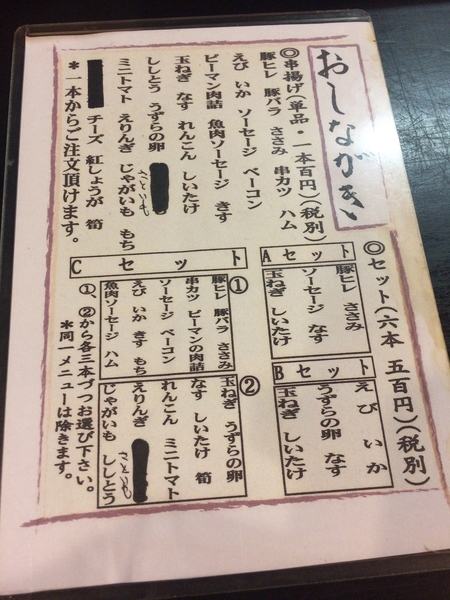 おしながき
◎串揚げ(単品・一本百円)(税別)
豚ヒレ 豚バラ ささみ 串カツ ハム
えび いか ソーセージ ベーコン
ピーマン肉詰 魚肉ソーセージ きす
玉ねぎ なす れんこん しいたけ
ししとう うずらの卵 さといも
ミニトマト えりんぎ じゃがいも もち
チーズ 紅しょうが 筍
*一本からご注文頂けます。
◎セット(六本 五百円)(税別)
Aセット
豚ヒレ ささみ
ソーセージ なす
玉ねぎ しいたけ
Bセット
えび いか
うずらの卵 なす
玉ねぎ しいたけ
Cセット
①
豚ヒレ 豚バラ ささみ
串カツ ピーマンの肉詰
ソーセージ ベーコン
えび いか きす もち
魚肉ソーセージ ハム
②
玉ねぎ うずらの卵
なす しいたけ 筍
れんこん ミニトマト
えりんぎ さといも
じゃがいも ししとう
①、②から各三本づつお選び下さい。
*同一メニューは除きます。